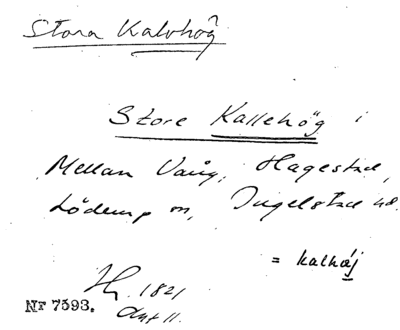 Stora Kalvhög
Store Kallehög i
Mellan Vång, Hagestad,
Löderup sn, Ingelstad hd.
= kalhåj
1821
Akt 11.
NF 7593.